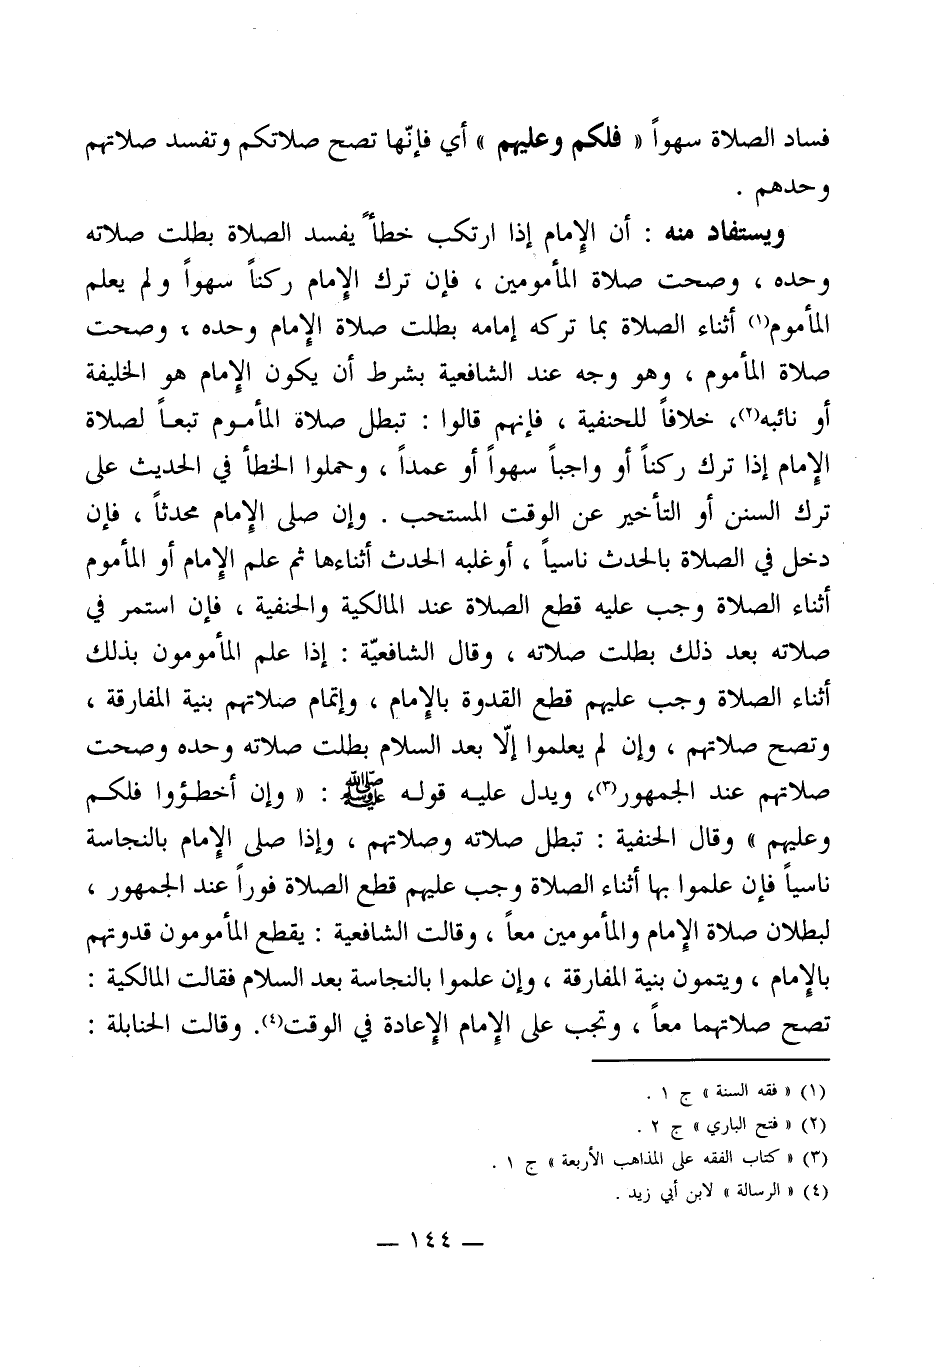 فساد الصلاة سهواً « فلكم وعليهم » أي فإنّها تصح صلاتكم وتفسد صلاتهم
وحدهم .
ويستفاد منه : أن الإمام إذا ارتكب خطأً يفسد الصلاة بطلت صلاته
وحده ، وصحت صلاة المأمومين ، فإن ترك الإمام ركناً سهواً ولم يعلم
المأموم(١) أثناء الصلاة بما تركه إمامه بطلت صلاة الإمام وحده ، وصحت
صلاة المأموم ، وهو وجه عند الشافعية بشرط أن يكون الإمام هو الخليفة
أو نائبه(٢)، خلافاً للحنفية ، فإنهم قالوا : تبطل صلاة المأموم تبعاً لصلاة
الإمام إذا ترك ركناً أو واجباً سهواً أو عمداً ، وحملوا الخطأ في الحديث على
ترك السنن أو التأخير عن الوقت المستحب . وإن صلى الإمام محدثاً ، فإن
دخل في الصلاة بالحدث ناسياً ، أوغلبه الحدث أثناءها ثم علم الإمام أو المأموم
أثناء الصلاة وجب عليه قطع الصلاة عند المالكية والحنفية ، فإن استمر في
صلاته بعد ذلك بطلت صلاته ، وقال الشافعيّة : إذا علم المأمومون بذلك
أثناء الصلاة وجب عليهم قطع القدوة بالإمام ، وإتمام صلاتهم بنية المفارقة ،
وتصح صلاتهم ، وإن لم يعلموا إلّا بعد السلام بطلت صلاته وحده وصحت
صلاتهم عند الجمهور(٣)، ويدل عليه قوله ﷺ : « وإن أخطؤوا فلكم
وعليهم » وقال الحنفية : تبطل صلاته وصلاتهم ، وإذا صلى الإمام بالنجاسة
ناسياً فإن علموا بها أثناء الصلاة وجب عليهم قطع الصلاة فوراً عند الجمهور ،
لبطلان صلاة الإمام والمأمومين معاً ، وقالت الشافعية : يقطع المأمومون قدوتهم
بالإمام ، ويتمون بنية المفارقة ، وإن علموا بالنجاسة بعد السلام فقالت المالكية :
تصح صلاتهما معاً ، وتجب على الإمام الإعادة في الوقت(٤). وقالت الحنابلة :
(١) « فقه السنة » ج ١ .
(٢) « فتح الباري » ج ٢ .
(٣) « كتاب الفقه على المذاهب الأربعة » ج ١ .
(٤) « الرسالة » لابن أبي زيد .
— ١٤٤ —